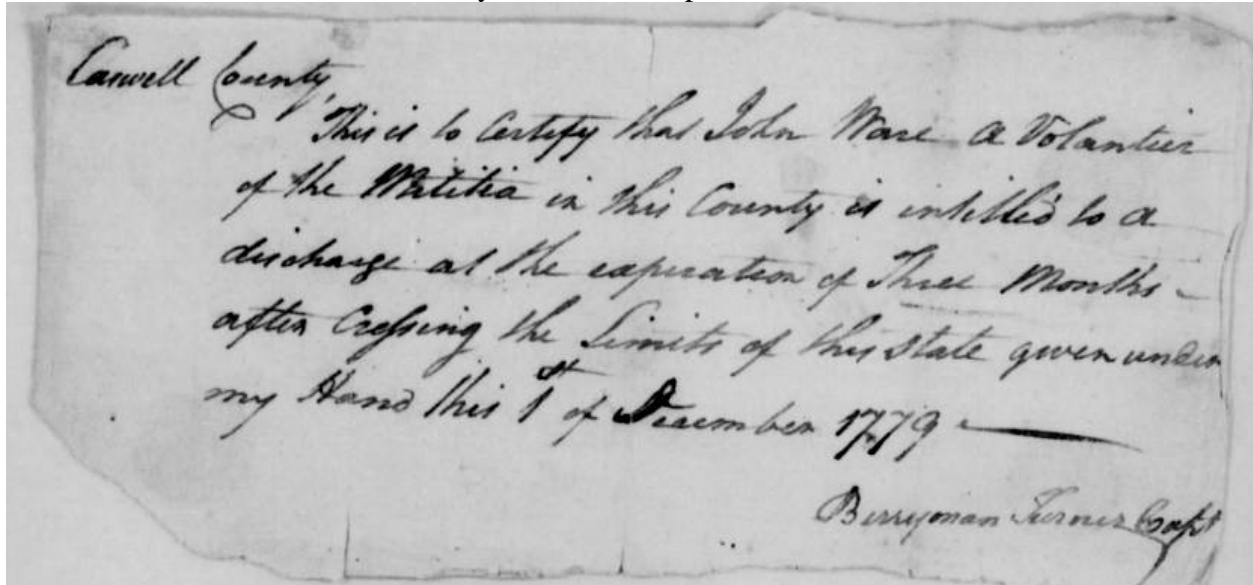 Caswell County,
This is to Certify that John Ware a Volantier
of the Militia in this County is intitled to a
discharge at the expiration of Three Months
after Crossing the Limits of this State given under
my Hand this 1st of December 1779
Berryman Turner Capt